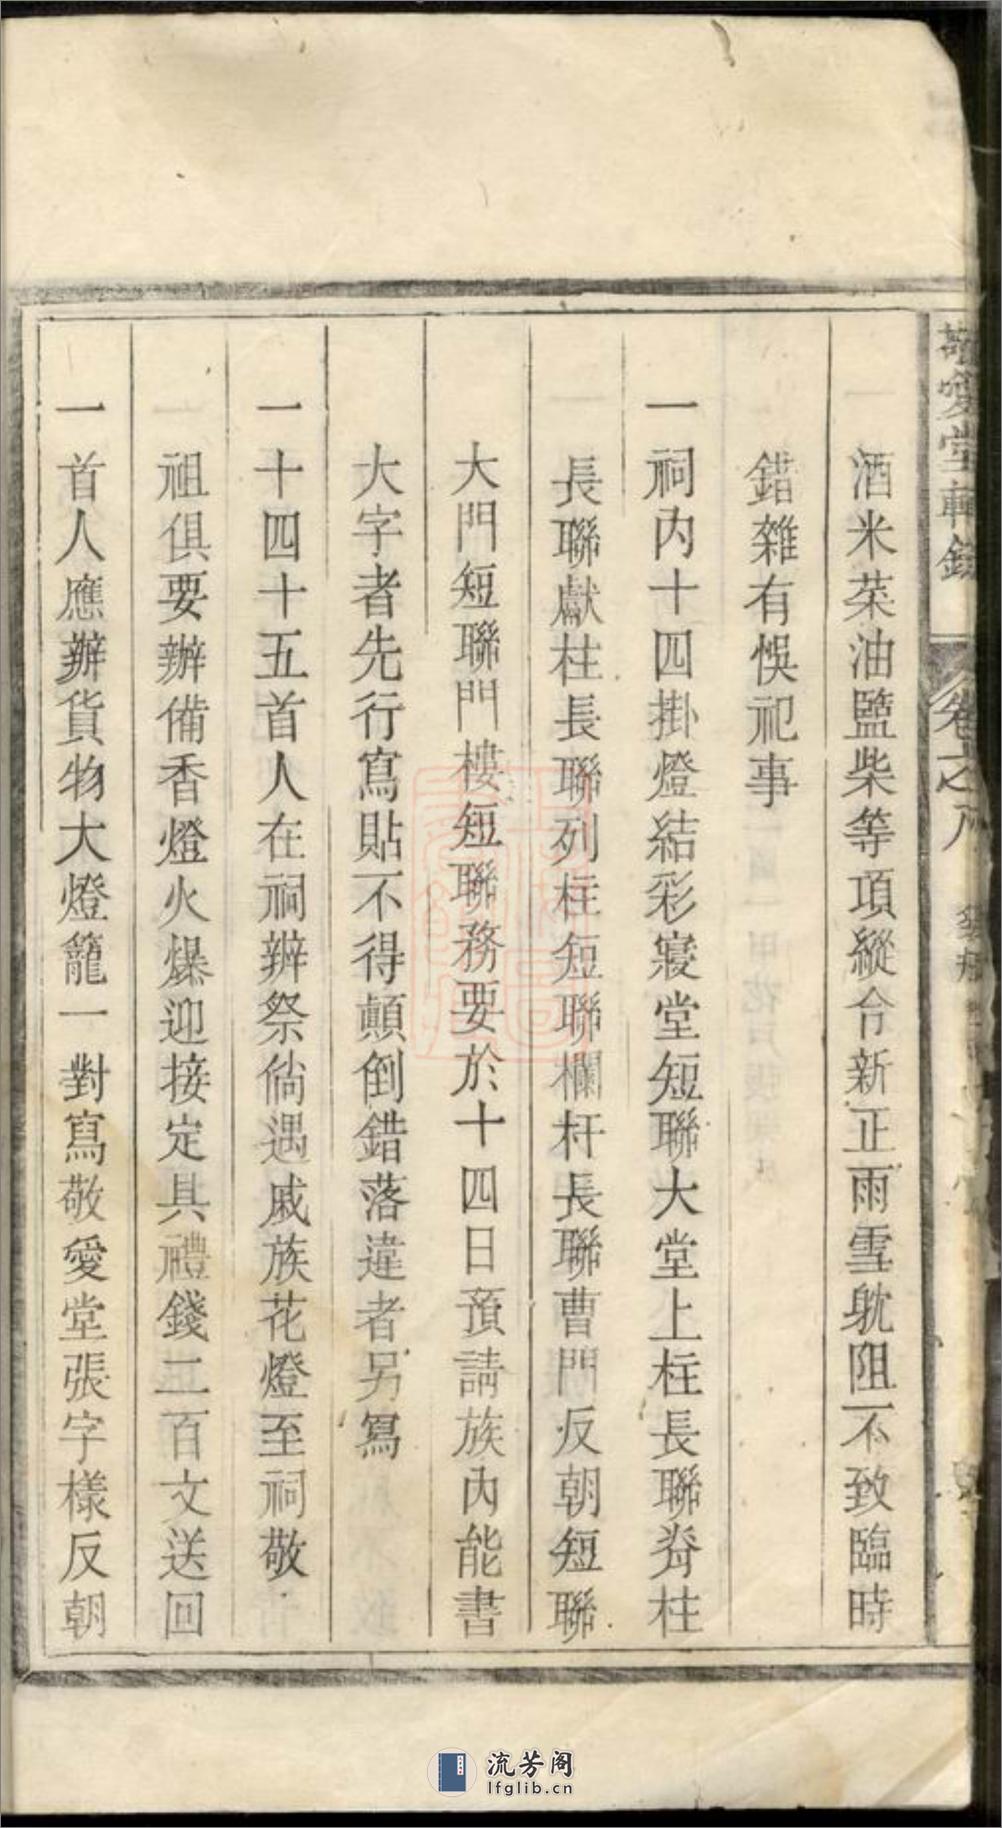 酒米菜油鹽柴等項縱令新正雨雪躭阻不致臨時
錯雜有悞祀事
一祠內十四掛燈結彩寢堂短聯大堂上柱長聯脊柱
長聯獻柱長聯列柱短聯欄杆長聯曹門反朝短聯
大門短聯門樓短聯務要於十四日預請族內能書
大字者先行寫貼不得顛倒錯落違者另寫
一十四十五首人在祠辦祭倘遇戚族花燈至祠敬
祖俱要辦備香燈火爆迎接定具禮錢二百文送回
一首人應辦貨物大燈籠一對寫敬愛堂張字樣反朝
流芳阁
lfglib.cn